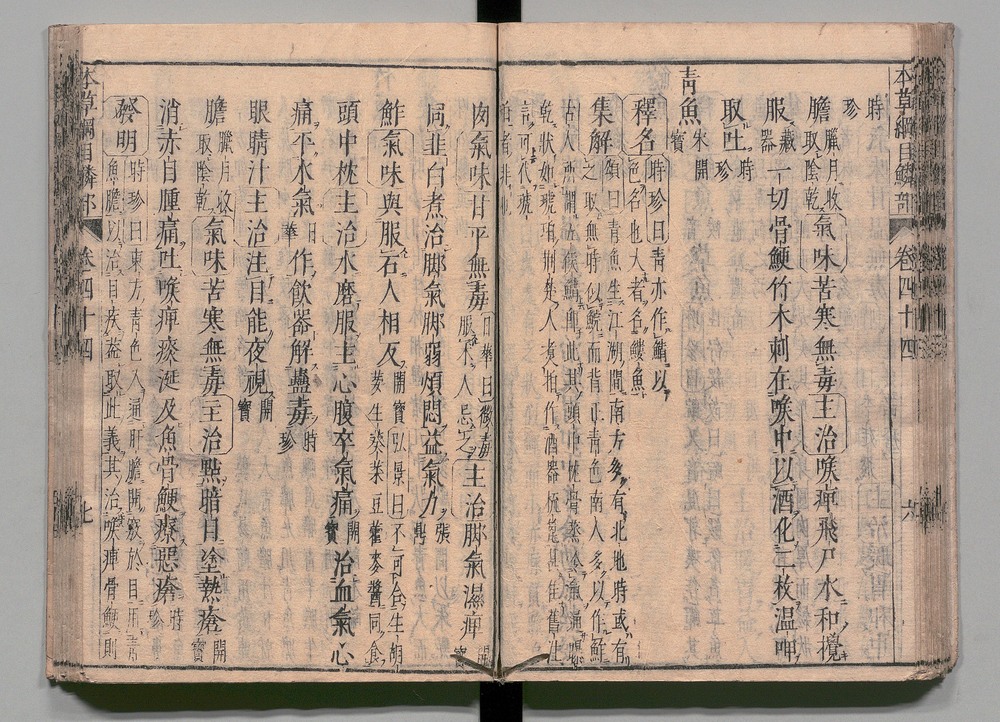 本草綱目鱗部 卷四十四 六
時珍
膽臘月收取陰乾氣味苦寒無毒主治喉痺飛尸水和攪
服藏器一切骨鯁竹木刺在喉中以酒化二枚溫呷
取吐時珍
青魚宋開寶
釋名時珍曰青亦作鯖以色名也大者名鱯魚
集解頌曰青魚生江湖間南方多有北地時或有之取無時似鯇而背正青色南人多以作鮓
古人所謂五侯鯖即此其頭中枕骨蒸令氣通曝乾狀如琥珀荆楚人煮拍作酒器梳篦甚佳舊註
言可代琥珀者非也
肉氣味甘平無毒日華曰微毒服朮人忌之主治脚氣濕痺開寶
同韭白煮治脚氣脚弱煩悶益氣力張鼎
鮓氣味與服石人相反開寶弘景曰不可合生胡荽生葵菜豆藿麥醬同食
頭中枕主治水磨服主心腹卒氣痛開寶治血氣心
痛平水氣日華作飲器解蠱毒時珍
眼睛汁主治注目能夜視開寶
膽臘月收取陰乾氣味苦寒無毒主治點暗目塗熱瘡開寶
消赤目腫痛吐喉痺痰涎及魚骨鯁療惡瘡時珍
發明時珍曰東方青色入通肝膽開竅於目用青魚膽以治目疾蓋取此義其治喉痺骨鯁則
本草綱目鱗部 卷四十四 七